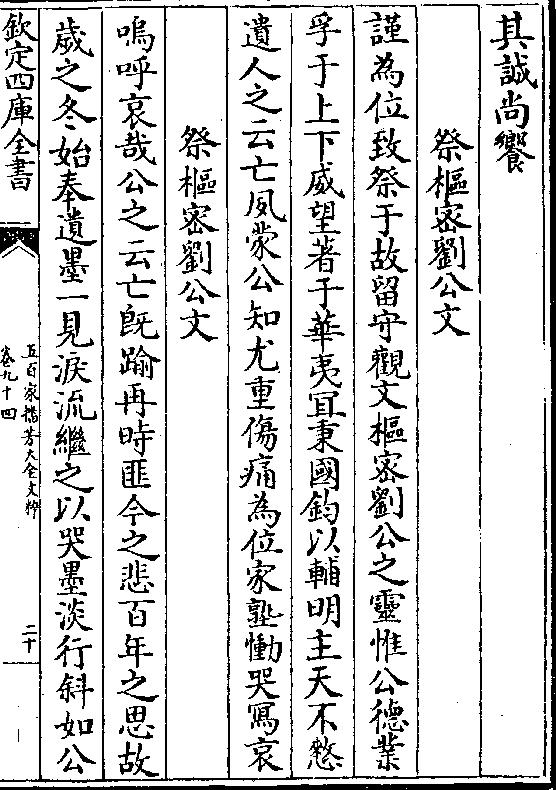 其誠尚饗
祭樞密劉公文
謹為位致祭于故留守觀文樞密劉公之靈惟公德業
孚于上下威望著于華夷冝秉國鈞以輔明主天不慭
遺人之云亡夙蒙公知尤重傷痛為位家塾慟哭寫哀
祭樞密劉公文
嗚呼哀哉公之云亡既踰再時匪今之悲百年之思故
歲之冬始奉遺墨一見淚流繼之以哭墨淡行斜如公
欽定四庫全書
五百家播芳大全文粹
卷九十四
二十